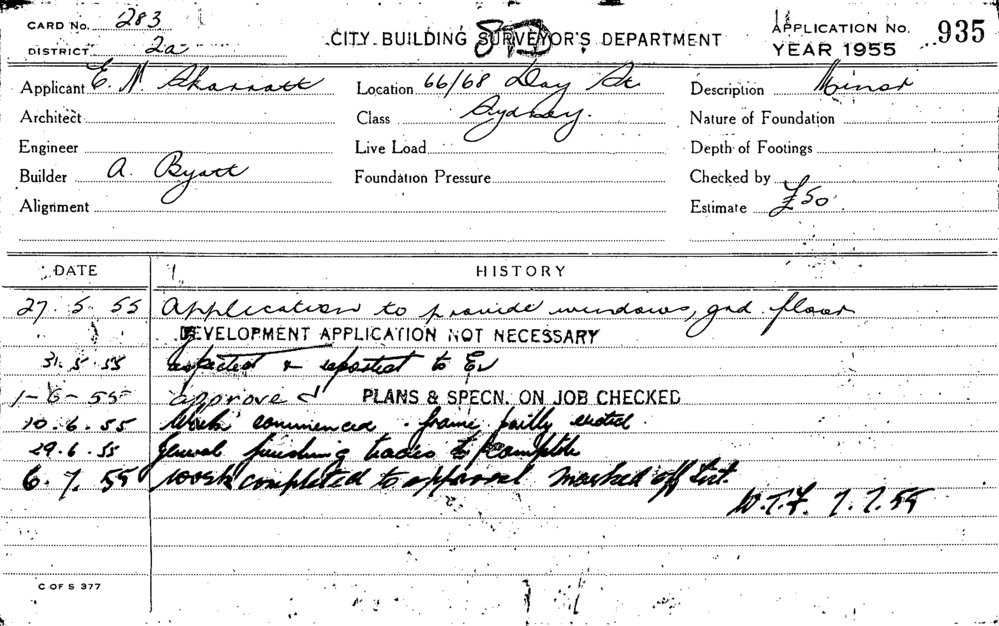 CARD No. 283
DISTRICT 2a
CITY BUILDING SURVEYOR'S DEPARTMENT
APPLICATION No. 935
YEAR 1955
Applicant E. N. Sharratt Location 66/68 Day St Description Minor
Architect Class Sydney. Nature of Foundation
Engineer Live Load Depth of Footings
Builder A. Byatt Foundation Pressure Checked by
Alignment Estimate £50
DATE HISTORY
27.5.55 Application to provide windows, grd floor
DEVELOPMENT APPLICATION NOT NECESSARY
31.5.55 inspected & reported to
1-6-55 approved PLANS & SPECN. ON JOB CHECKED
10.6.55 Work commenced. frame partly erected
29.6.55 General finishing trades to complete
6.7.55 work completed to approval marked off list.
W.T.F. 7.7.55
C OF S 377